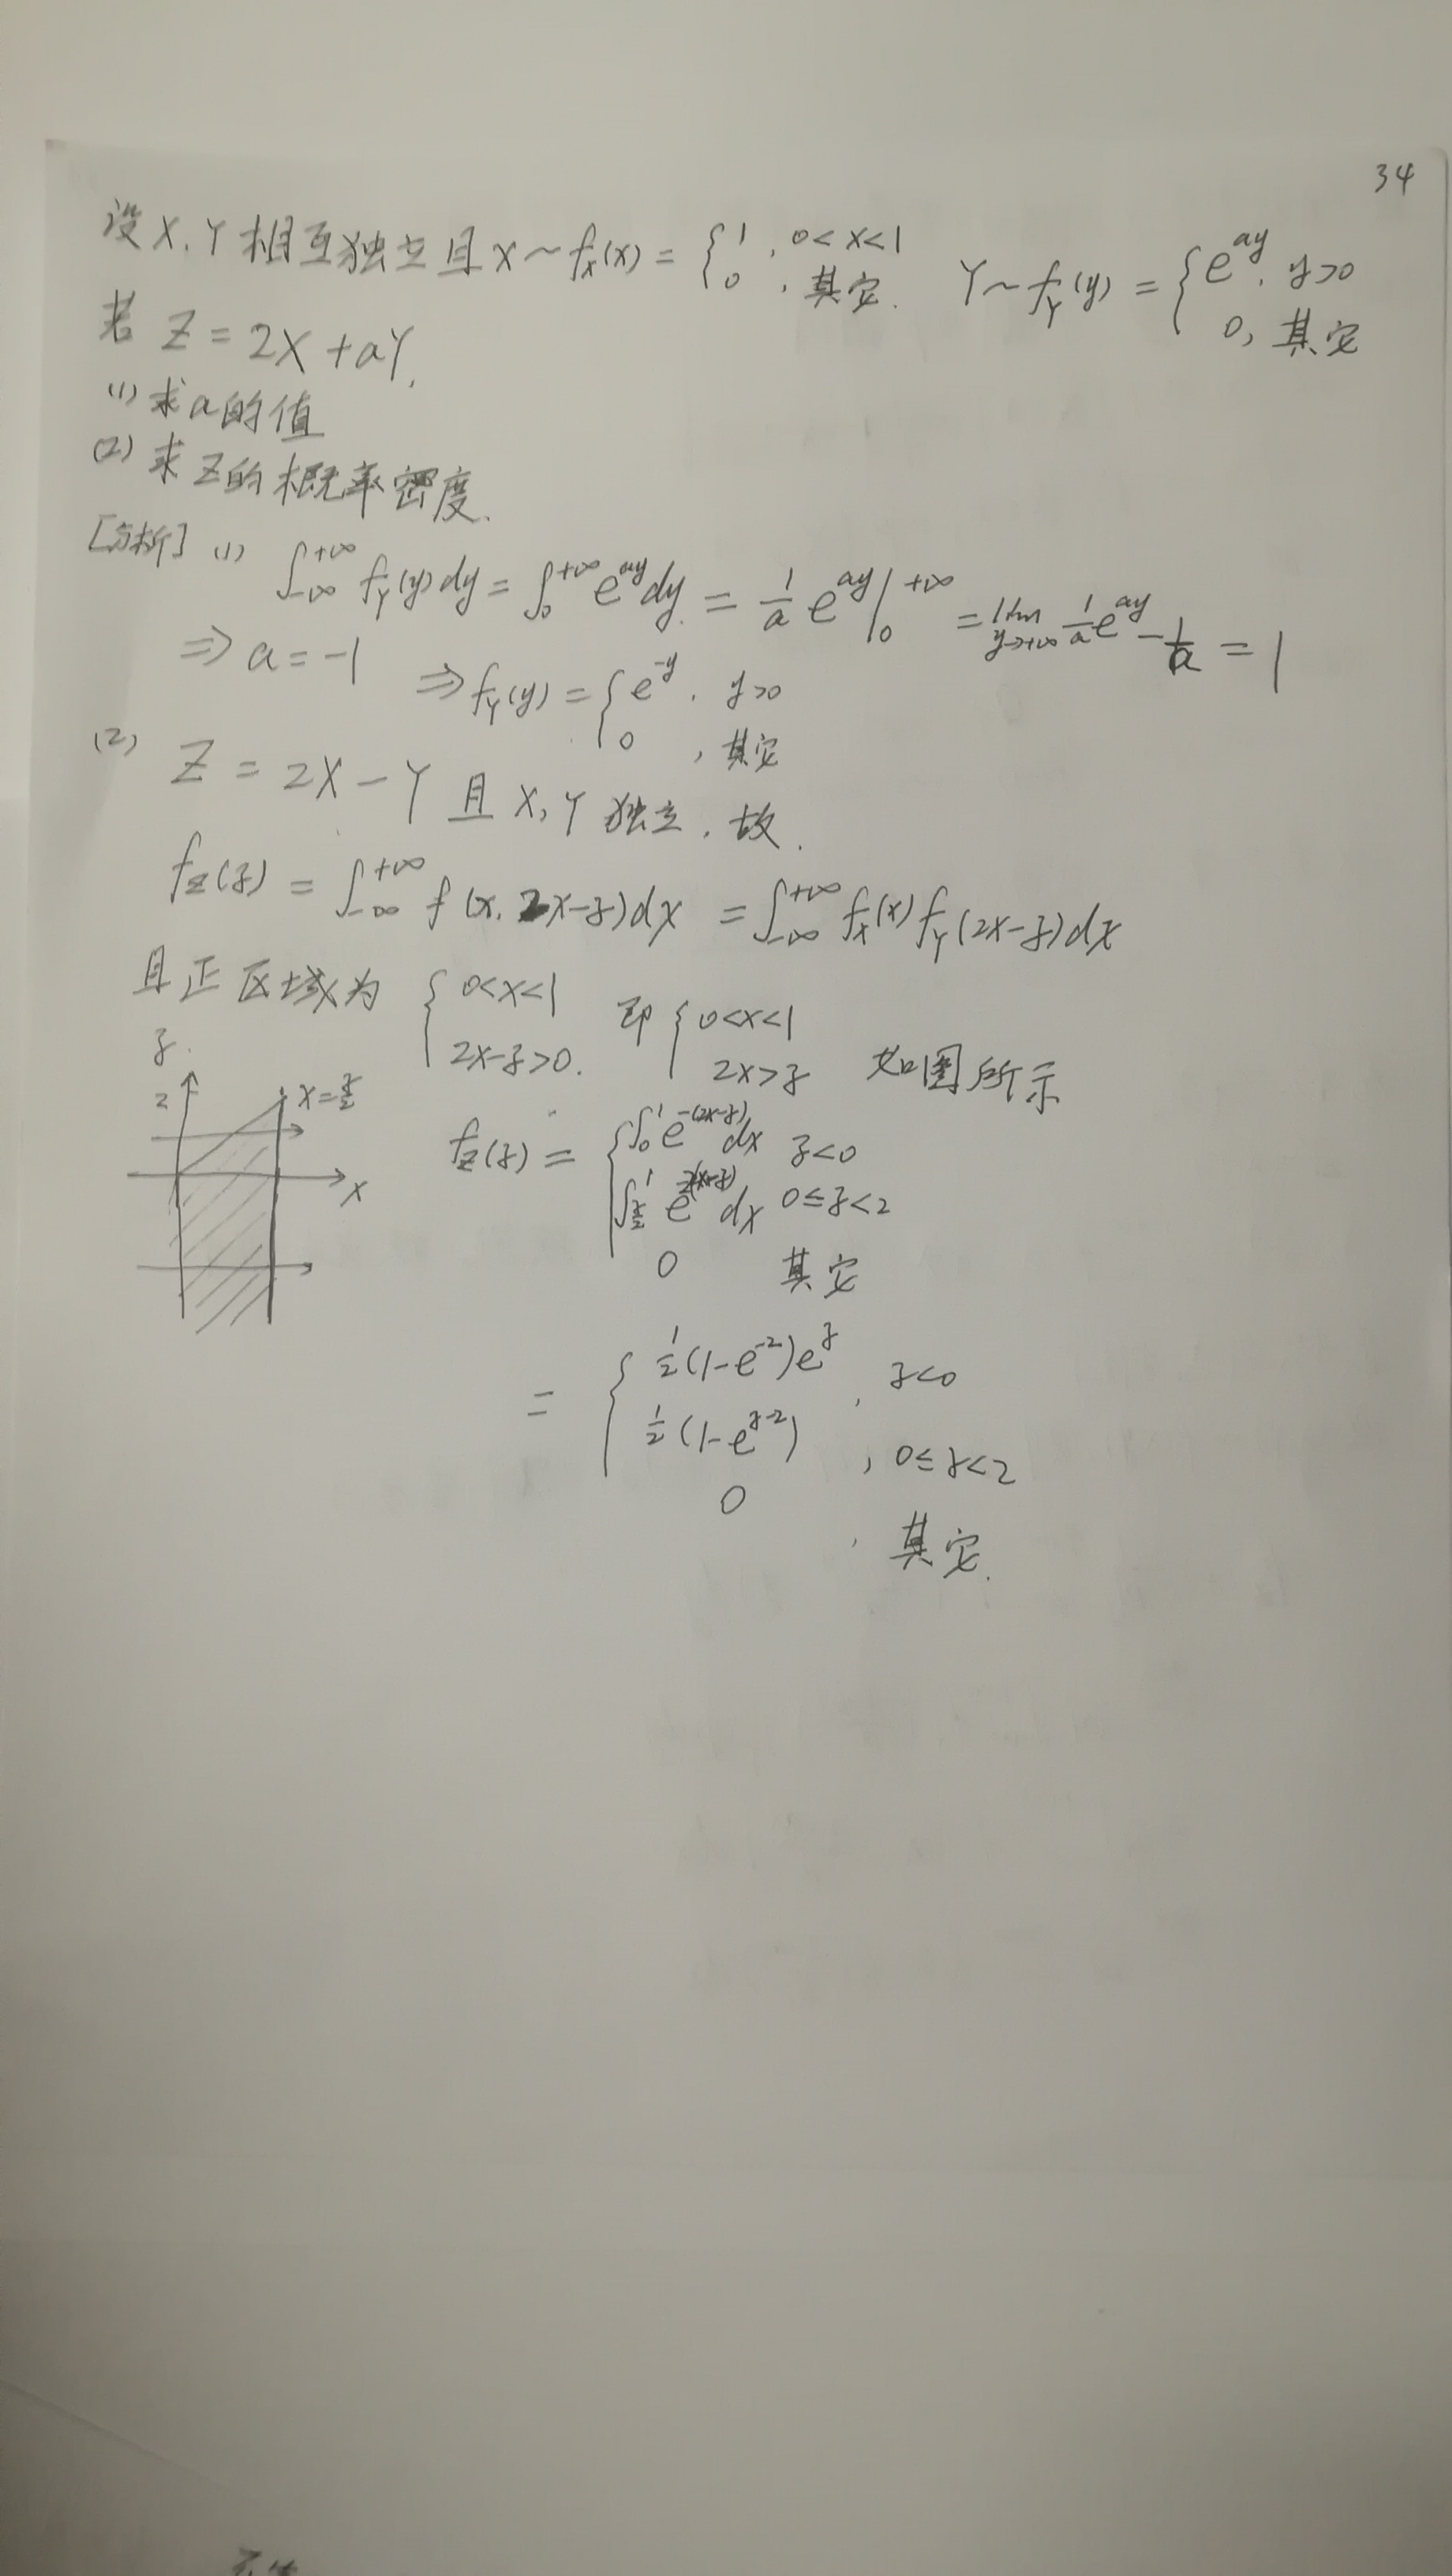 34
设X,Y相互独立且X~f_X(x)={1, 0<x<1  Y~f_Y(y)={e^{ay}, y>0
0, 其它.  0, 其它
若 Z=2X+aY,
(1) 求a的值
(2) 求Z的概率密度.
[分析] (1) ∫_{-∞}^{+∞} f_Y(y)dy=∫_0^{+∞} e^{ay}dy=1/a e^{ay}|_0^{+∞}=lim_{y→+∞} 1/a e^{ay}-1/a=1
⇒ a=-1 ⇒ f_Y(y)={e^{-y}, y>0
0, 其它
(2) Z=2X-Y 且 X,Y 独立,故.
f_Z(z)=∫_{-∞}^{+∞} f(x, 2x-z)dx=∫_{-∞}^{+∞} f_X(x)f_Y(2x-z)dx
且正区域为 {0<x<1 即 {0<x<1
2x-z>0. 2x>z 如图所示
z
2
x=z/2
x
f_Z(z)={∫_0^1 e^{-(2x-z)}dx z<0
∫_{z/2}^1 e dx 0≤z<2
0 其它
={1/2(1-e^{-2})e^z, z<0
1/2(1-e^{z-2}), 0≤z<2
0, 其它.